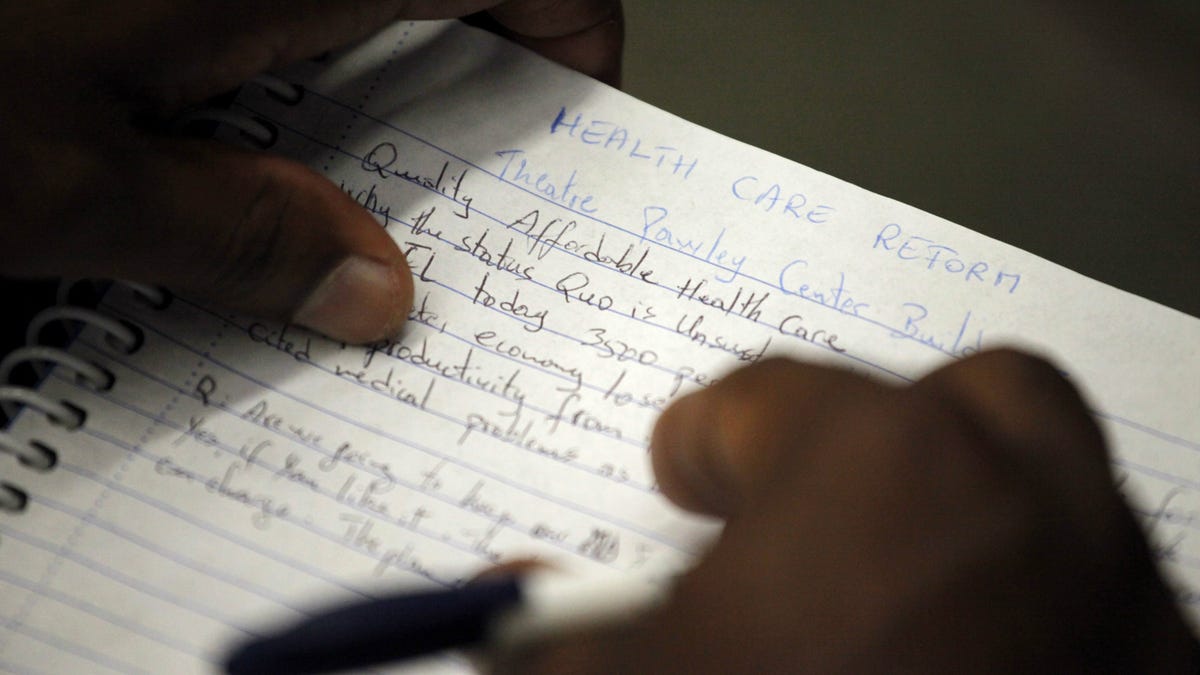 HEALTH CARE REFORM
Theatre Pawley Center Build
Quality Affordable Health Care
why the status Quo is Unsust
FL today 3520 pe
economy loses
cited productivity from
medical problems as
Q. Are we going to keep our
Yes, if you like it - the
can change. The plan